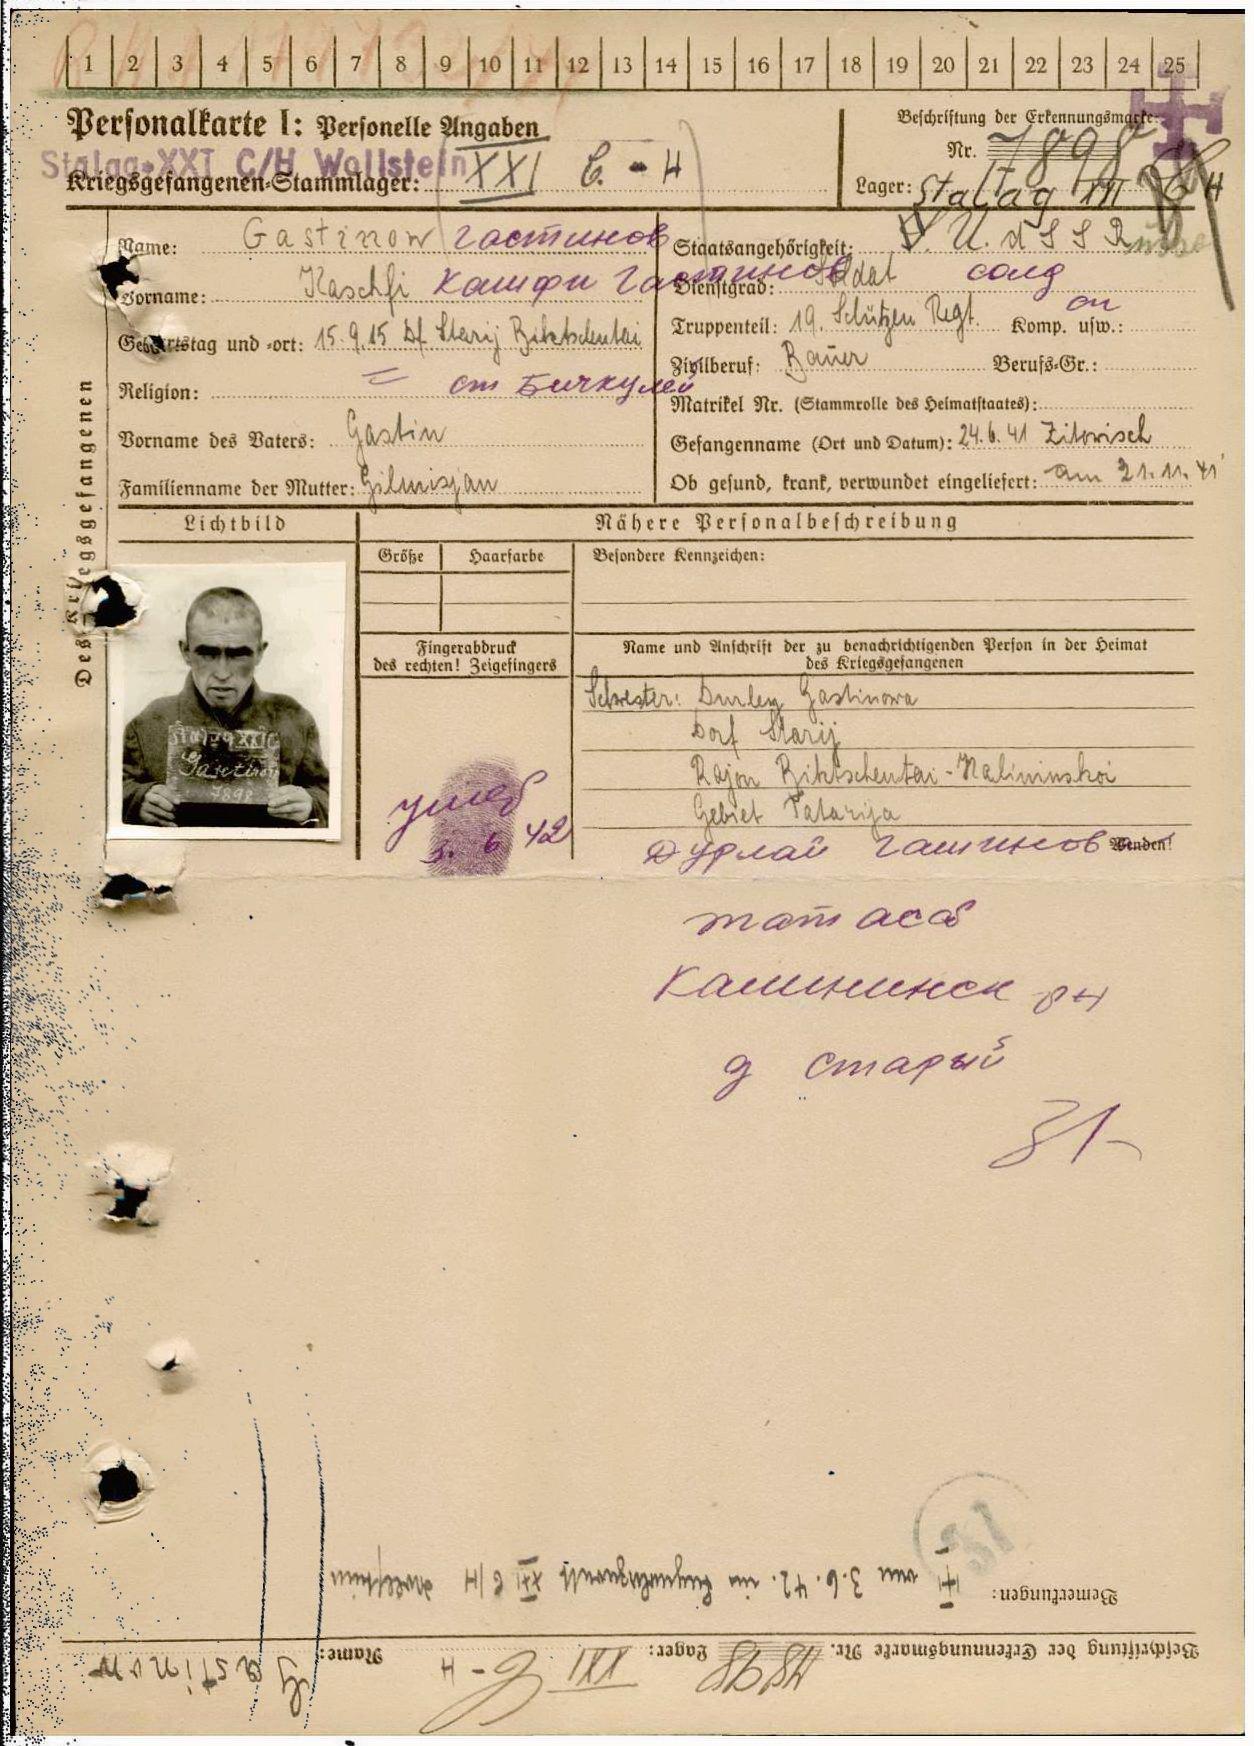 1 2 3 4 5 6 7 8 9 10 11 12 13 14 15 16 17 18 19 20 21 22 23 24 25
Personalkarte I: Personelle Angaben
Beschriftung der Erkennungsmarke:
Stalag XXI C/H Wollstein
Nr. 7898
Kriegsgefangenen-Stammlager: XXI C - H
Lager: Stalag XXI C H
Des Kriegsgefangenen
Name: Gastinow Гастинов
Vorname: Kaschfi Кашфи Гастинов
Geburtstag und -ort: 15.9.15 Df. Starij Biktschentai
Religion: ст Бичкулей
Vorname des Vaters: Gastin
Familienname der Mutter: Gilmisjan
Staatsangehörigkeit: U.d.S.S.R
Dienstgrad: Soldat солд
Truppenteil: 19. Schützen Regt. Komp. usw.: сп
Zivilberuf: Bauer Berufs-Gr.:
Matrikel Nr. (Stammrolle des Heimatstaates):
Gefangenname (Ort und Datum): 24.6.41 Zitowisch
Ob gesund, krank, verwundet eingeliefert: am 21.11.41
Lichtbild
Nähere Personalbeschreibung
Größe Haarfarbe Besondere Kennzeichen:
Stalag XXI C
Gastinow
7898
Fingerabdruck
des rechten! Zeigefingers
умер
3. 6 42
Name und Anschrift der zu benachrichtigenden Person in der Heimat
des Kriegsgefangenen
Schwester: Durley Gastinowa
Dorf Starij
Rajon Biktschentai-Kalininskoi
Gebiet Tatarija
Дурлай Гашинов Wenden!
татасс
Калининск рн
д старый
31
Bemerkungen: am 3.6.42. im XXI C/H Wollstein
Beschriftung der Erkennungsmarke Nr. 7898 Lager: XXI C-H Name: Gastinow